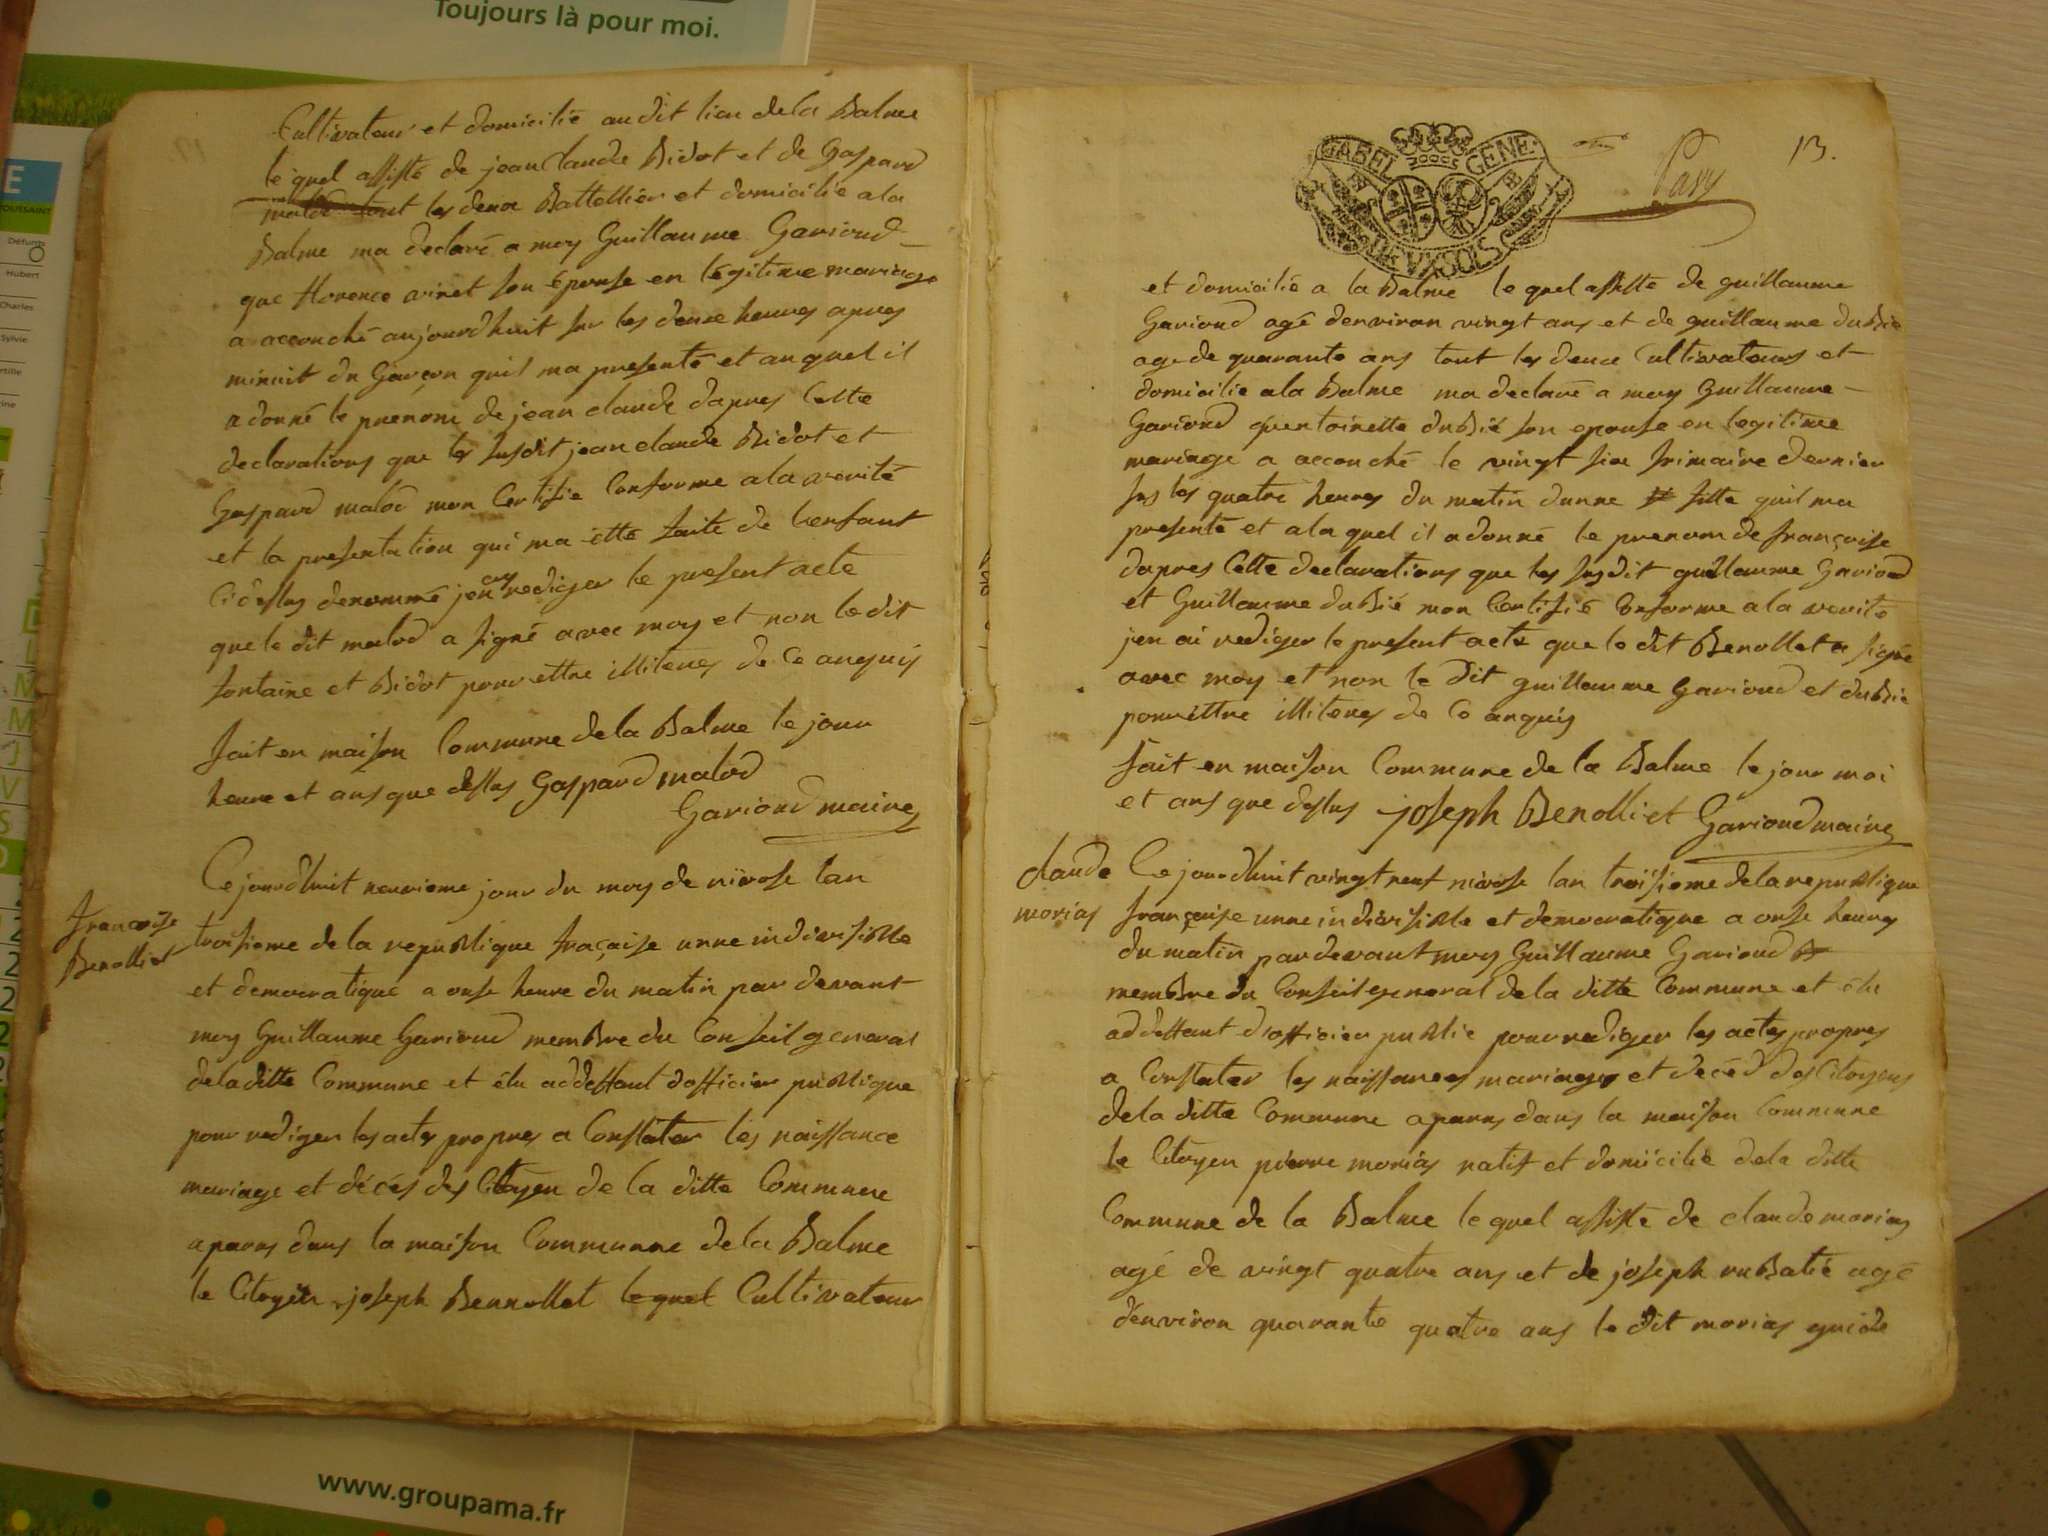 Toujours là pour moi.
Cultivateur et domicilié audit lieu de la Balme
le quel assisté de jean Claude Bidot et de Gaspard
malod tout les deux Battellier et domicilié a la
Balme ma declaré a moy Guillaume Gorioud
que florence vinet son épouse en légitime mariage
a accouché aujourdhuit sur les deux heures apres
minuit du Garçon quil ma presenté et auquel il
a donné le prenom de jean claude dapres Cette
declarations que les susdit jean claude Bidot et
Gaspard malod mon Certifie Conforme a la verité
et la presentation qui ma etté faite de lenfant
Cidessus denommé jen ay rediger le present acte
que le dit malod a signé avec moy et non le dit
fontaine et Bidot pour ettre illiteres de Ce anquis
fait en maison Commune de la Balme le jour
heure et ans que dessus Gaspard malod
Garioud maire
Françoise
Benolliet
Ce jourdhuit neuvieme jour du moy de nivose lan
troisieme de la republique fraçaise unne indivisible
et democratique a onse heure du matin par devant
moy Guillaume Garioud membre du Conseil general
de la ditte Commune et élu addettant dofficier publique
pour rediger les actes propres a Constater les naissance
mariage et décés des Citoyen de la ditte Commune
aparus dans la maison Communne de la Balme
le Citoyen joseph Bennollet lequel Cultivateur
GABEL GENE.
DE
13.
et domicilié a la Balme le quel assisté de guillaume
Garioud agé denviron vingt ans et de guillaume duBié
age de quarante ans tout les deux Cultivateurs et
domicilie a la Balme ma declaré a moy Guillaume
Garioud quentoinette duBié son epouse en legitime
mariage a accouché le vingt six frimaire dernier
sus les quatre heures du matin dunne fille quil ma
presenté et a la quel il a donné le prenom de françoise
dapres Cette declarations que les susdit guillaume Garioud
et Guillaume duBié mon Certifié Conforme a la verité
jen ai rediger le present acte que le dit Benollet a signé
avec moy et non le dit guillaume Garioud et duBié
pour ettre illiteres de Ce anquis
fait en maison Commune de la Balme le jour moi
et ans que dessus joseph Benolliet Garioud maire
Claude
morias
Ce jourdhuit vingt neuf nivose lan troisieme de la republique
française unne indivisible et democratique a onse heures
du matin par devant moy Guillaume Garioud
membre du Conseil general de la ditte Commune et élu
addettant dofficier public pour rediger les actes propres
a Constater les naissances mariages et décéd des Citoyens
de la ditte Commune aparus dans la maison Commune
le Citoyen pierre morias natif et domicilié de la ditte
Commune de la Balme le quel assisté de claude morias
agé de vingt quatre ans et de joseph ruBatié agé
denviron quarante quatre ans le dit morias guide
www.groupama.fr